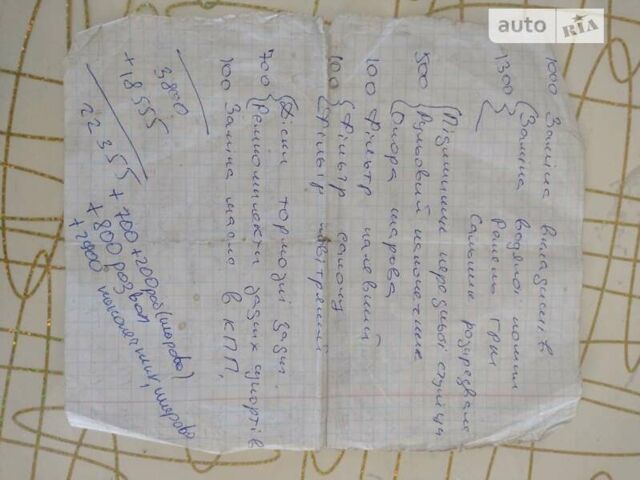 auto RIA
1000 Заміна вкладишів
1300 { Заміна водяної помпи
Ремень ГРМ
Сальник розпредвала
500 { Підшипники передньої ступиці
Рульовий наконечник
Опора шарова
100 Фільтр паливний
100 { Фільтр салону
Фільтр повітряний
700 { Діски тормозні задні
Ремкомплекти задніх супортів
100 Заміна масла в КПП,
3800
+18555
22355 + 700 + 200 роб (шарова)
+ 800 розвал
+ 2900 наконечники, шарова